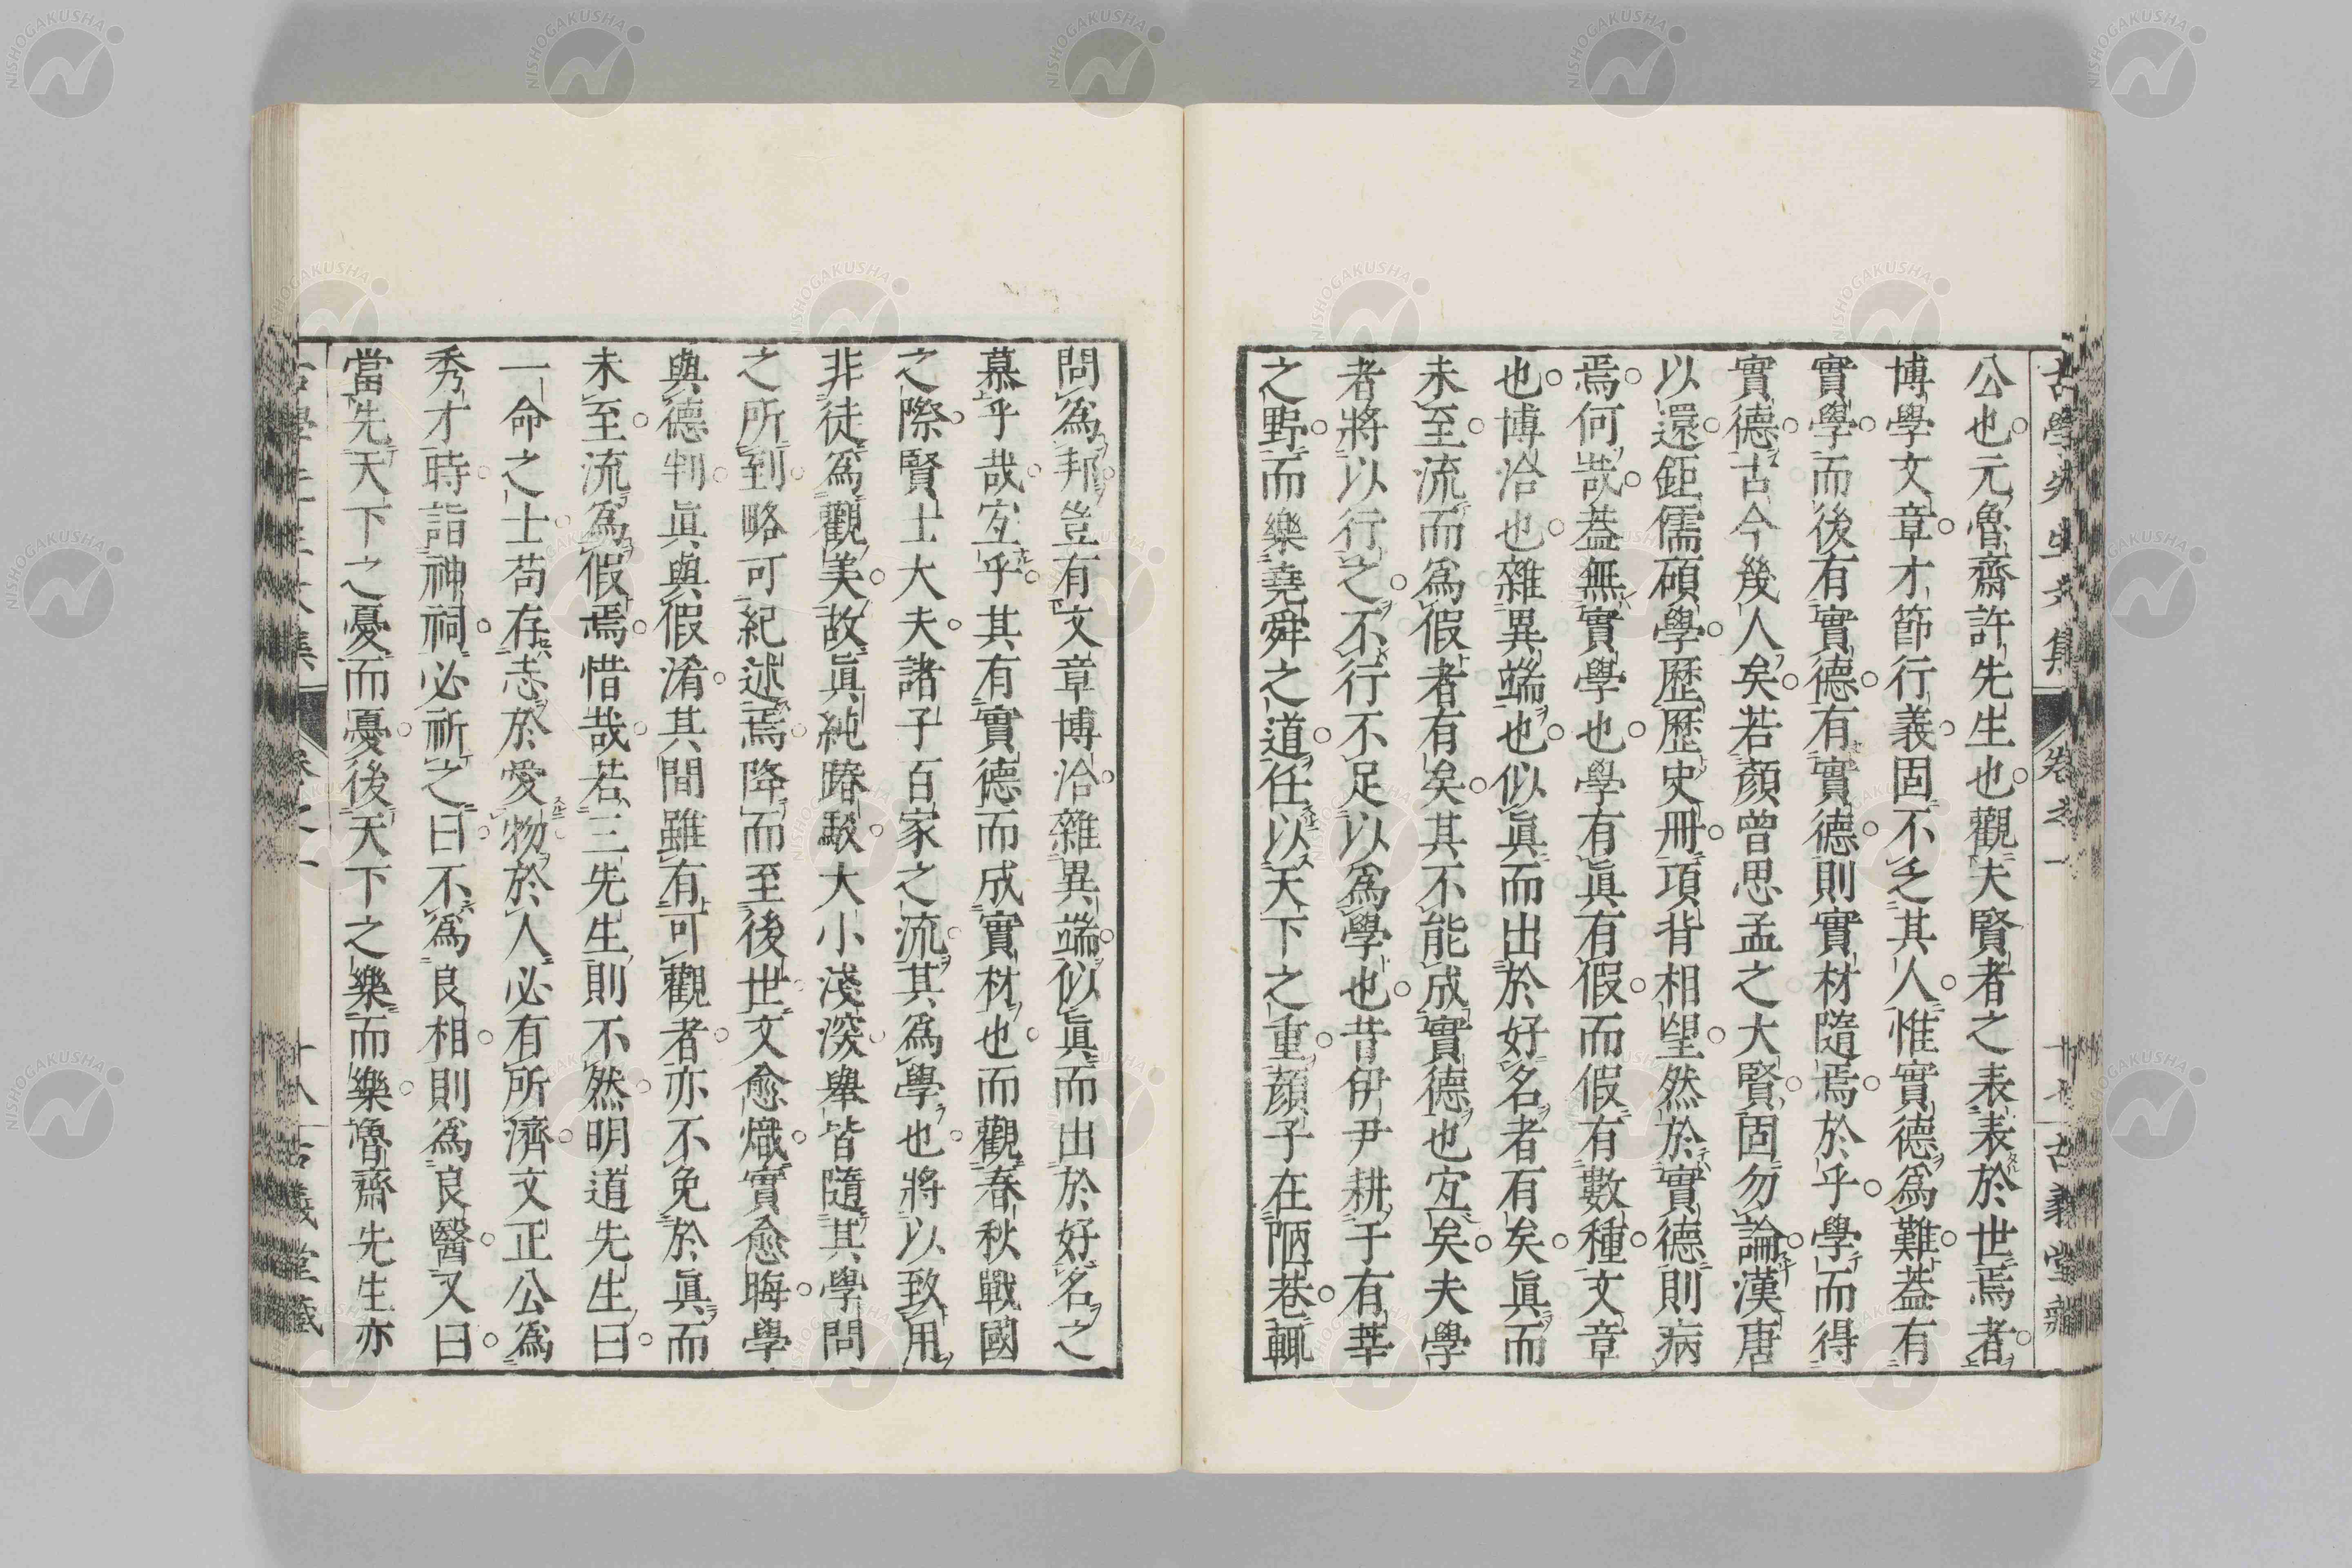 古學先生文集 卷之一 古義堂藏
公也元魯齋許先生也觀夫賢者之表表於世焉者
博學文章才節行義固不乏其人惟實德爲難葢有
實學而後有實德有實德則實材隨焉於乎學而得
實德古今幾人矣若顏曾思孟之大賢固勿論漢唐
以還鉅儒碩學歷歷史冊項背相望然於實德則病
焉何哉葢無實學也學有眞有假而假有數種文章
也博洽也雜異端也似眞而出於好名者有矣眞而
未至流而爲假者有矣其不能成實德也宐矣夫學
者將以行之不行不足以爲學也昔伊尹耕于有莘
之野而樂堯舜之道任以天下之重顏子在陋巷輒
問爲邦豈有文章博洽雜異端似眞而出於好名之
慕乎哉宐乎其有實德而成實材也而觀春秋戰國
之際賢士大夫諸子百家之流其爲學也將以致用
非徒爲觀美故眞純蹖駁大小淺深舉皆隨其學問
之所到略可紀述焉降而至後世文愈熾實愈晦學
與德判眞與假淆其間雖有可觀者亦不免於眞而
未至流爲假焉惜哉若三先生則不然明道先生曰
一命之士苟存志於愛物於人必有所濟文正公爲
秀才時詣神祠必祈之曰不爲良相則爲良醫又曰
當先天下之憂而憂後天下之樂而樂魯齋先生亦
古學先生文集 卷之一 十八 古義堂藏